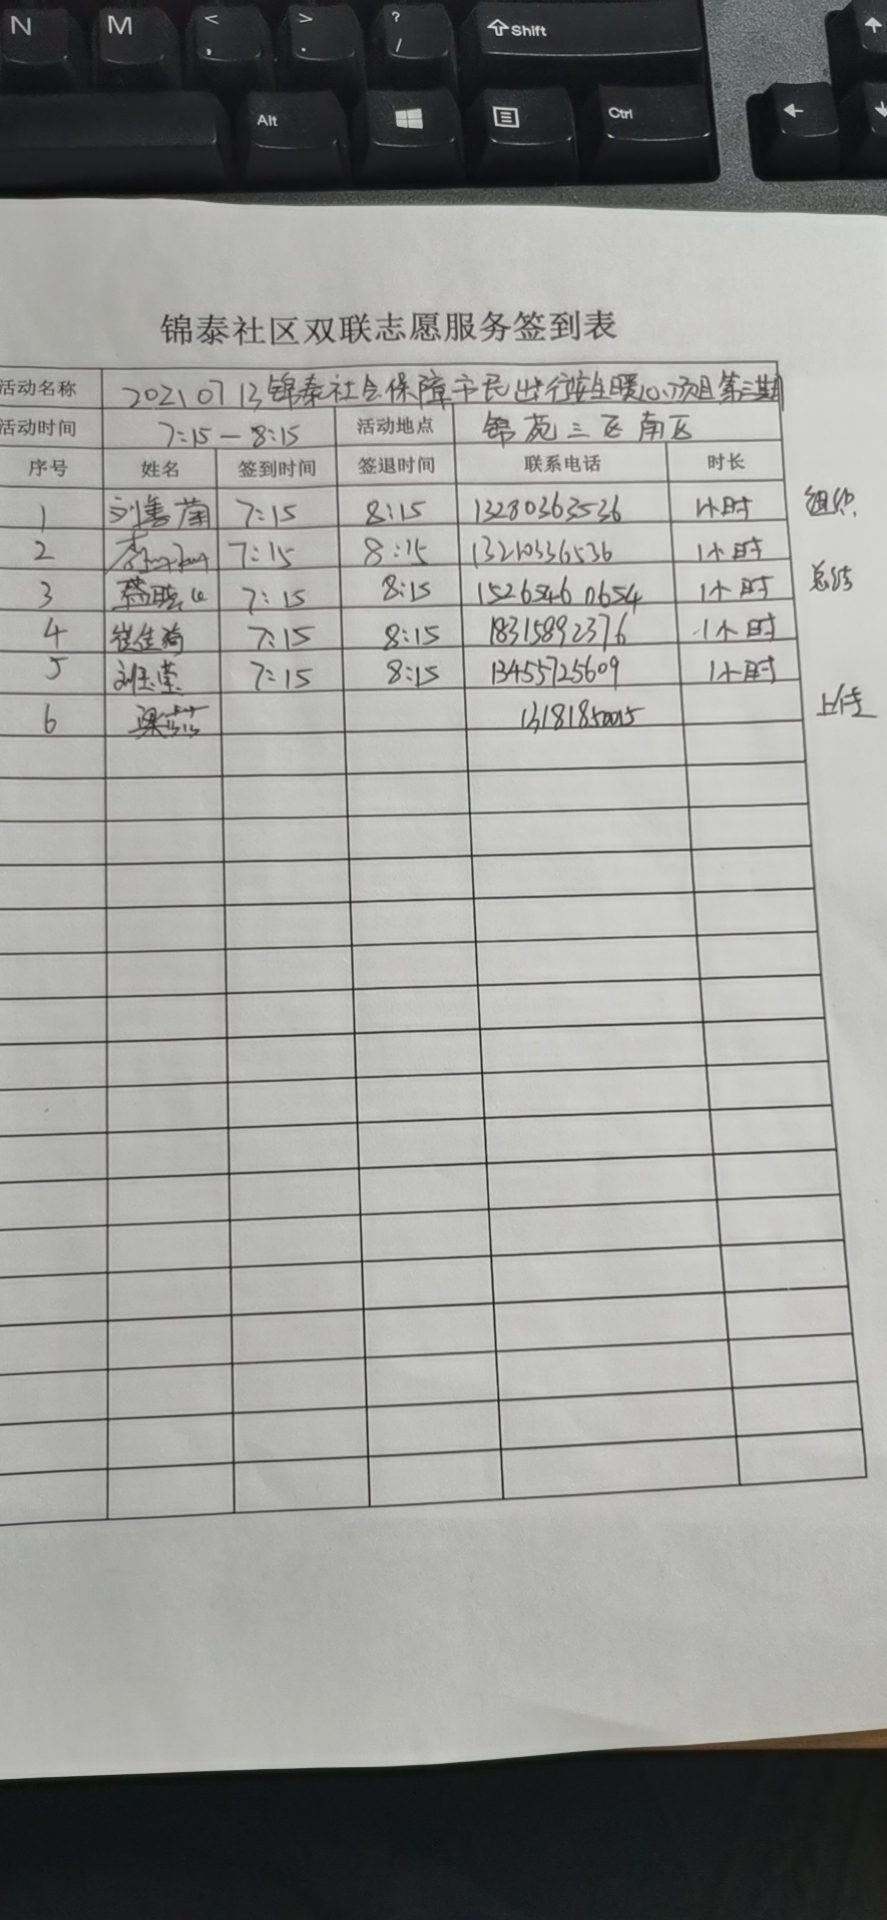 N M < , > . ? / Shift
Alt Ctrl
锦泰社区双联志愿服务签到表
活动名称 20210713锦泰社会保障市民出行安全暖心项目第三期
活动时间 7:15-8:15 活动地点 锦苑三区南区
序号 姓名 签到时间 签退时间 联系电话 时长
1 刘 7:15 8:15 13280363536 1小时 组织
2 李 7:15 8:15 13210336536 1小时
3 7:15 8:15 15265460654 1小时 总结
4 崔佳 7:15 8:15 18315892376 1小时
5 刘玉荣 7:15 8:15 13455725609 1小时
6 梁 13181850015 上传